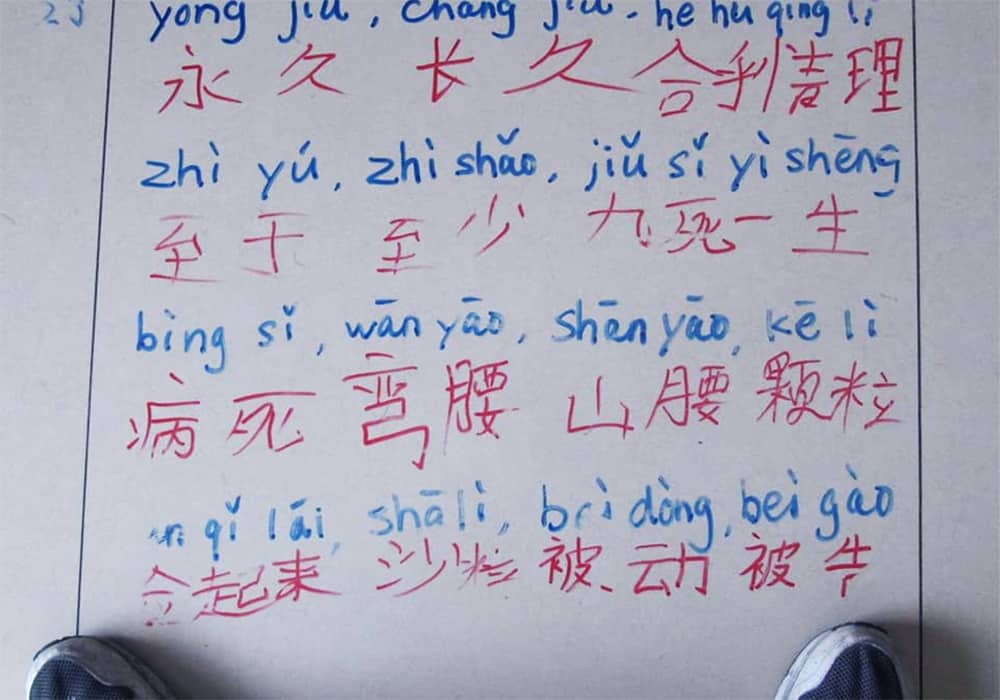 yǒng jiǔ, cháng jiǔ. hé hu qíng lǐ
永久 长久 合乎情理
zhì yú, zhì shǎo, jiǔ sǐ yì shēng
至于 至少 九死一生
bìng sǐ, wān yāo, shān yāo, kē lì
病死 弯腰 山腰 颗粒
qǐ lái, shā lì, bèi dòng, beì gào
起来 沙粒 被动 被